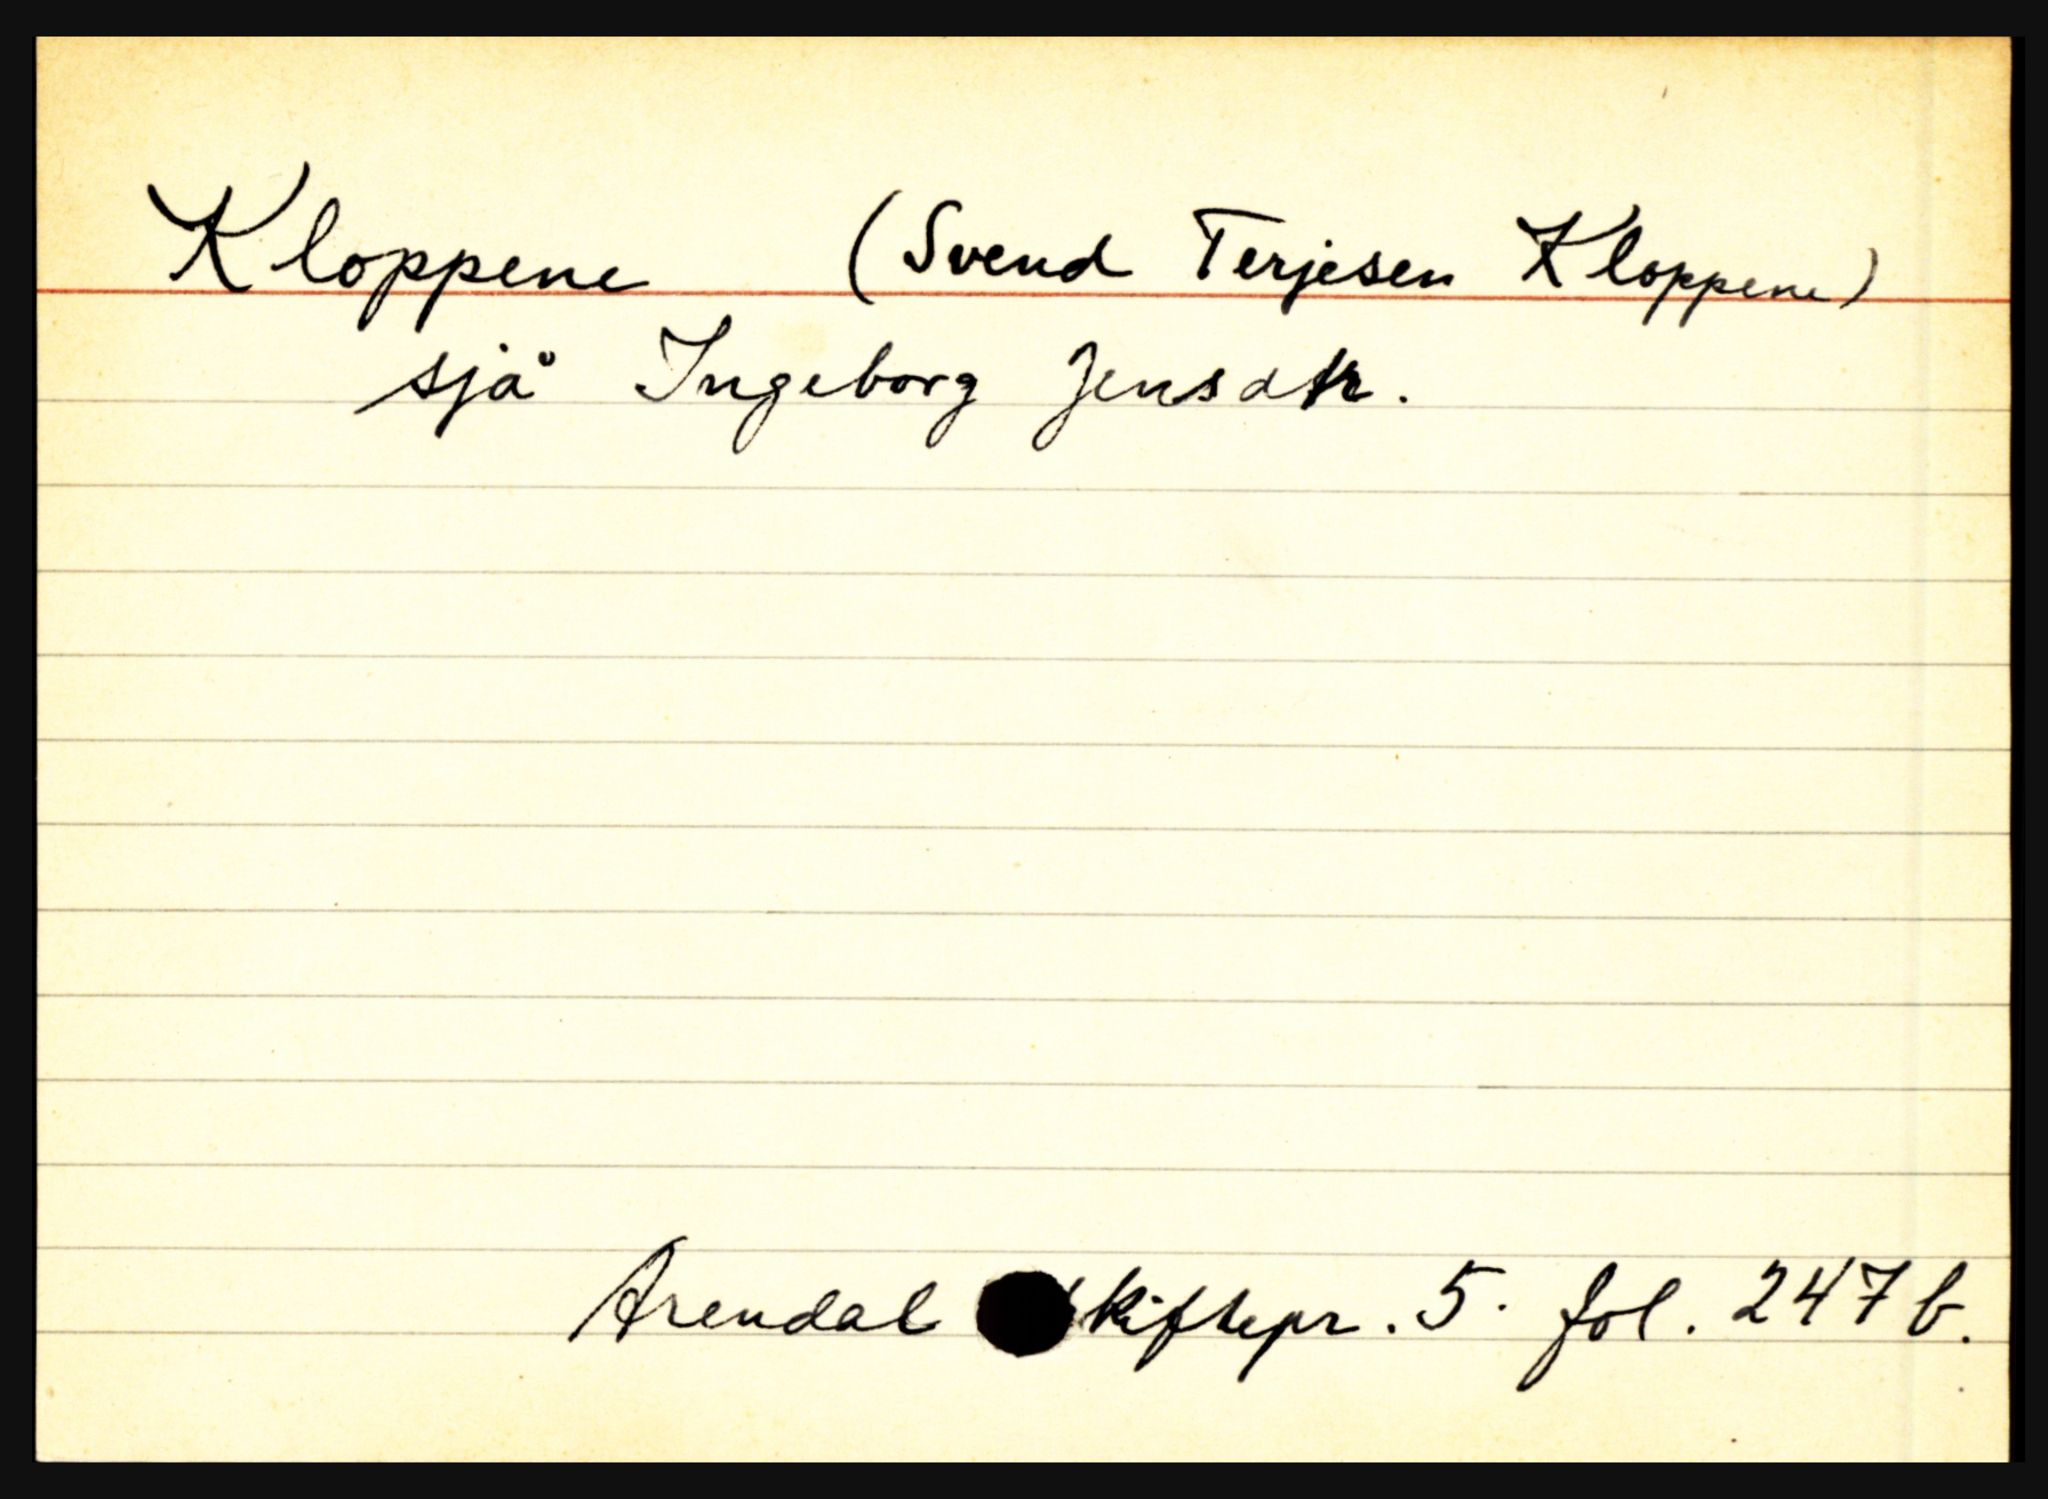 Kloppene (Svend Terjesen Kloppene)
sjå Ingeborg Jensdtr.
Arendal skiftepr. 5. fol. 247 b.